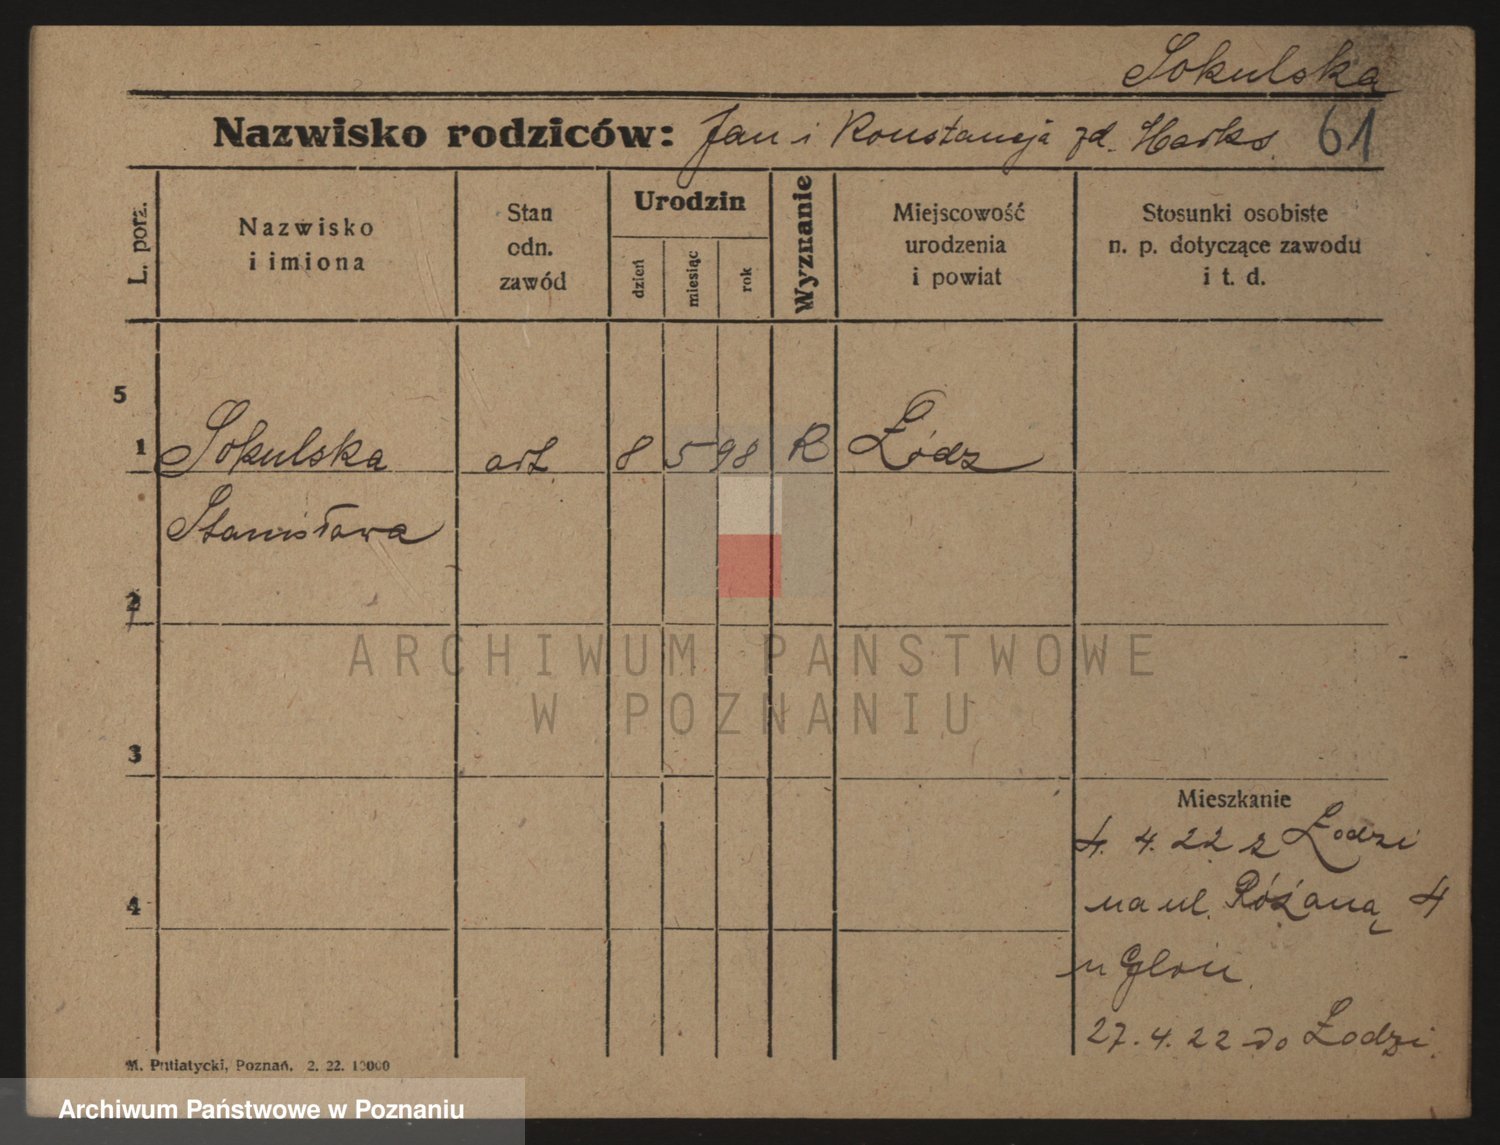 Sokulska
Nazwisko rodziców: Jan i Konstancja zd. Harks 61
L. porz.
Nazwisko
i imiona
Stan
odn.
zawód
Urodzin
dzień
miesiąc
rok
Wyznanie
Miejscowość
urodzenia
i powiat
Stosunki osobiste
n. p. dotyczące zawodu
i t. d.
5
1 Sokulska art 8 5 98 R Łódz
Stanisława
2
3
Mieszkanie
4. 4. 22 z Łodzi
4
na ul. Różaną 4
u
27. 4. 22 do Łodzi.
M. Putiatycki, Poznań. 2. 22. 10000
ARCHIWUM PAŃSTWOWE
W POZNANIU
Archiwum Państwowe w Poznaniu